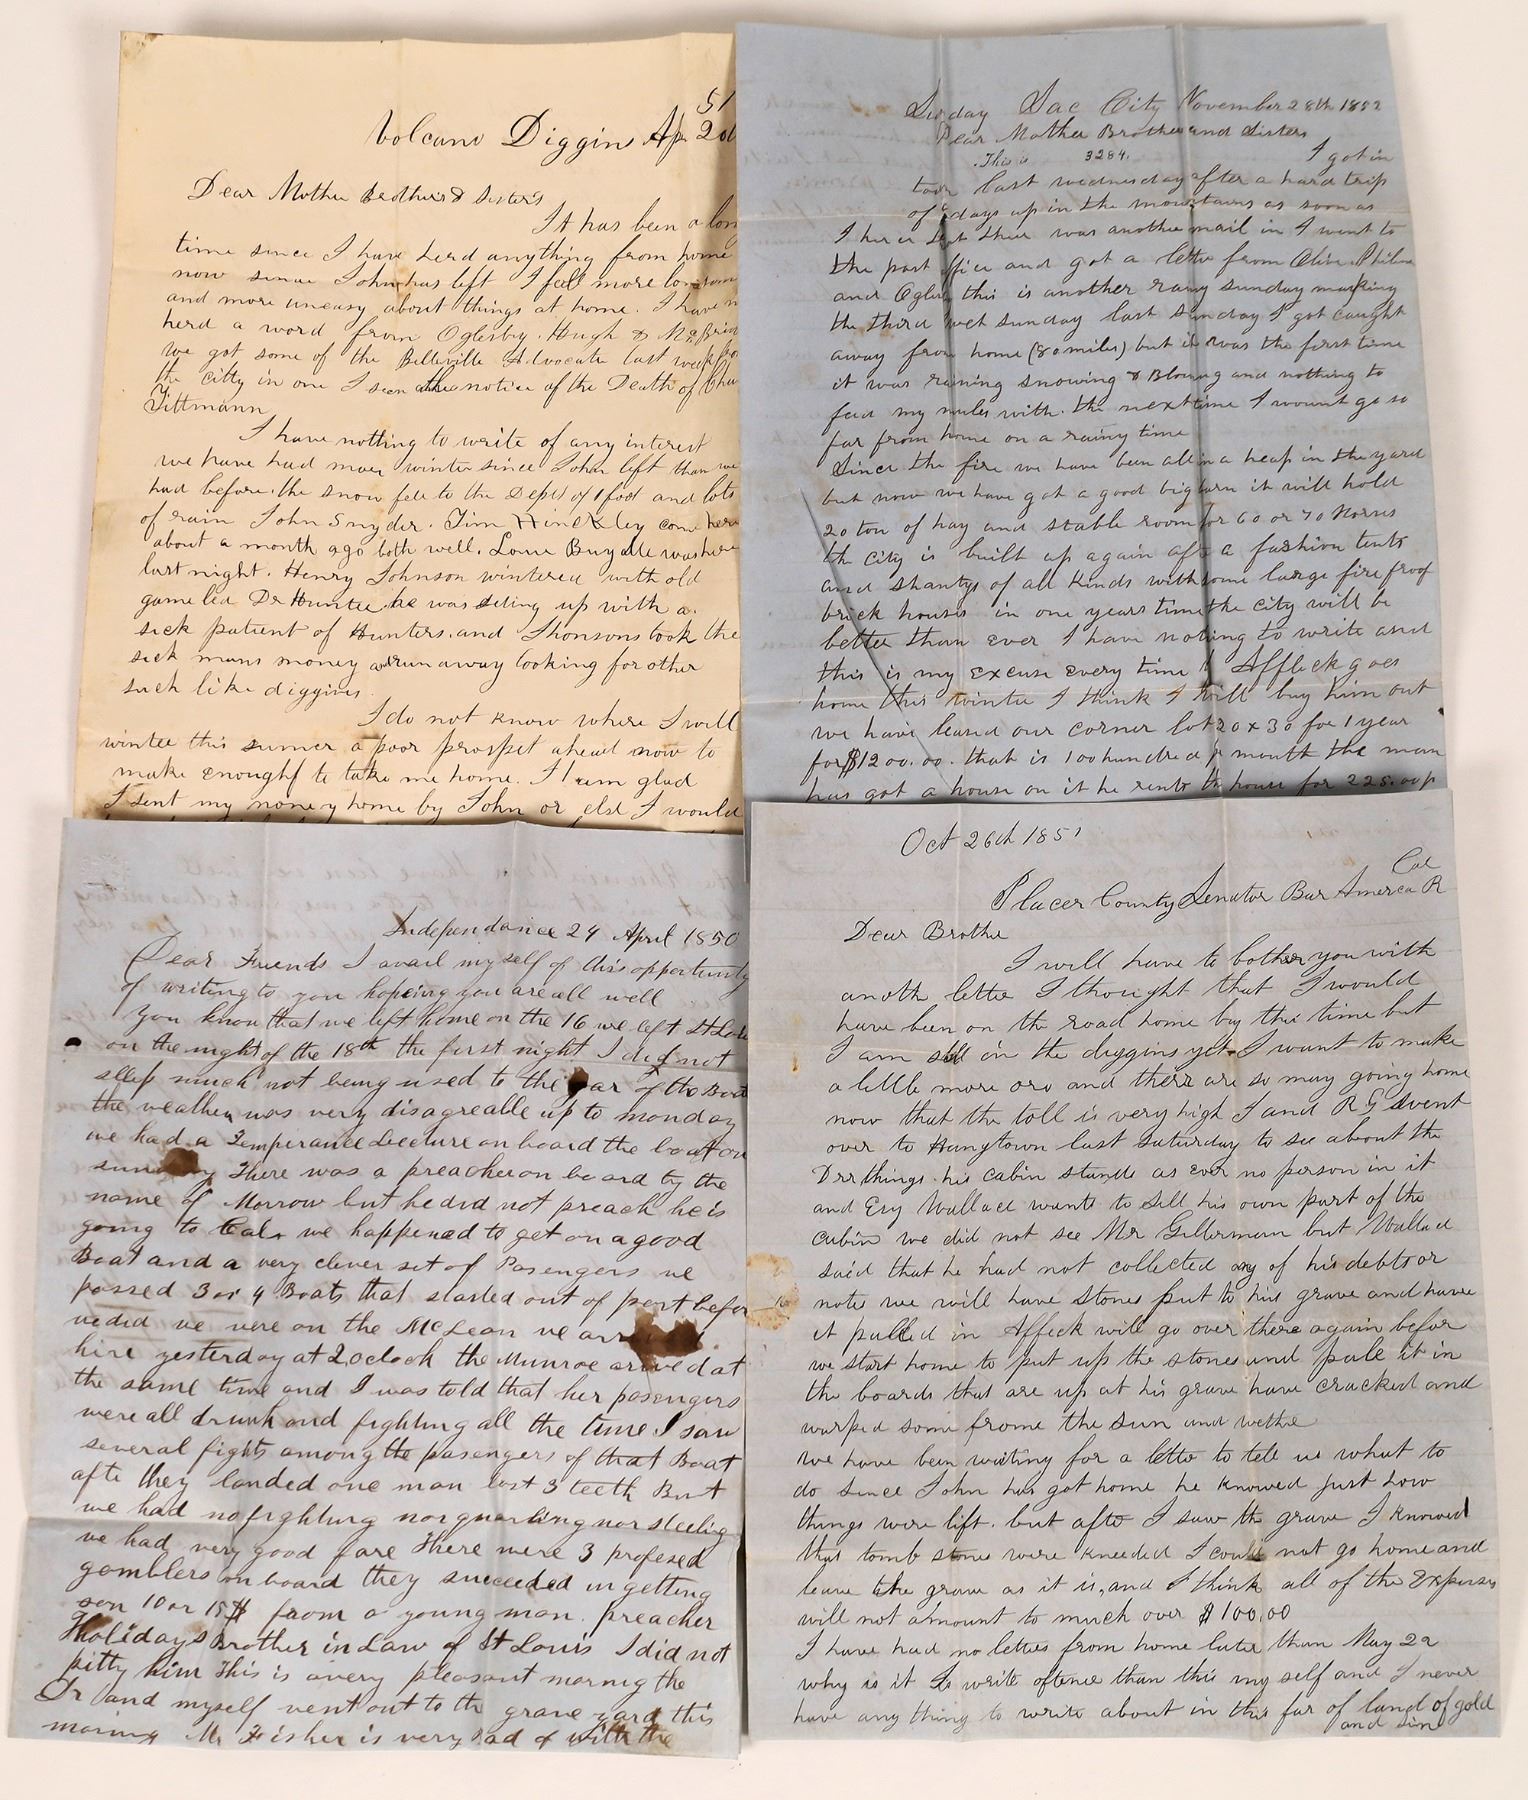 51
Volcano Diggins Ap 20
Dear Mother Brothers & Sisters
It has been a long
time since I have herd anything from home
now since John has left I fell more lonesom
and more uneasy about things at home. I have n
herd a word from Oglesby. Hugh &
we got some of the Belleville Advocate last week
the citty in one I seen the notice of the Death of
Tittmann
I have nothing to write of any interest
we have had more winter since John left than we
had before. the snow fell to the Dept of 1 foot and lots
of rain John Snyder. Tim Hinckley come here
about a month ago both well. was here
last night. Henry Johnson wintered with old
Dr Hunter he was seting up with a
sick patient of Hunters. and Jhonsons took the
sick mans money and run away looking for other
such like diggins.
I do not know where I will
winter this sumer a poor prospet ahead now to
make enought to take me home. I am glad
I sent my money home by John or elsd I would
Sunday Sac City November 28th 1852
Dear Mother Brother and Sisters
This is 3284. I got in
town last wednesday after a hard trip
of days up in the mountains as soon as
I there was another mail in I went to
the post office and got a letter from Olive Philma
and Ogle this is another rany sunday making
the third wet sunday last Sunday I got caught
away from home (80 miles) but it was the first time
it was raining snowing & Blowing and nothing to
fead my mules with. the next time I wount go so
far from home on a rainy time
Since the fire we have been all in a heap in the yard
but now we have got a good big barn it will hold
20 ton of hay and stable room for 60 or 70 Horses
the city is built up again aftr a fashion tents
and shantys of all kinds with some large fire proof
brick houses in one years time the city will be
better than ever I have noting to write and
this is my excuse every time Affleck goes
home this winter I think I will buy him out
we have leased our corner lot 20 x 30 for 1 year
for $1200.00. that is 100 hundred p month the man
has got a house on it he rents the house for 225.00 p
Independance 24 April 1850
Dear Friends I avail myself of this opportunity
of writing to you hopeing you are all well
You know that we left home on the 16 we left St Lou
on the night of the 18th the first night I did not
sleep much not being used to the of the Boat
the weather was very disagreable up to monday
we had a Temperance Lecture on board the boat on
sunday There was a preacher on board by the
name of Morrow but he did not preach he is
going to Cal. we happened to get on a good
Boat and a very clever set of Pasengers we
passed 3 or 4 Boats that started out of port befor
we did we were on the McLean we
hire yesterday at 2 oclock the Munroe arived at
the same time and I was told that her pasengers
were all drunk and fighting all the time I saw
several fights among the pasengers of that Boat
afte they landed one man lost 3 teeth But
we had no fighting nor quarling nor steeling
we had very good fare There were 3 profesed
gamblers on board they succeeded in getting
som 10 or 15$ from a young man. preacher
Holidays Brother in Law of St Louis I did not
pitty him This is avery pleasant mornig the
Dr and myself went out to the grave yard this
moring Mr Fisher is very with the
Oct 26th 1851
Cal
Placer County Senator Bar America R
Dear Brother
I will have to bother you with
anoth letter I thought that I would
have been on the road home by this time but
I am still in the diggins yet I want to make
a little more oro and there are so many going home
now that the toll is very high I and R G went
over to Hangtown last Saturday to see about the
Drs things. his cabin stands as ever no person in it
and Ery Wallace wants to sell his own part of the
cabin we did not see Mr Gillerman but Wallace
said that he had not collected any of his debts or
notes we will have stones put to his grave and have
it palled in Affleck will go over there again befor
we start home to put up the stones and pale it in
the boards that are up at his grave have cracked and
warped some frome the sun and wethe
We have been waiting for a letto to tell us what to
do since John has got home he knowed just how
things were lift. but afte I saw the grave I knowed
that tomb stones were kneeded I could not go home and
leave the grave as it is, and I think all of the Expenses
will not amount to much over $100.00
I have had no letters from home later than May 22
why is it Is write oftener than this my self and I never
have any thing to write about in this far of land of gold
and sin